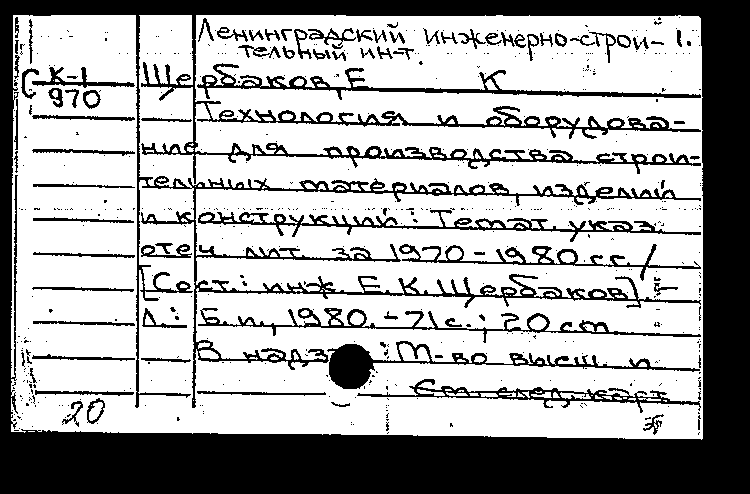 Ленинградский инженерно-строи- 1.
тельный ин-т.
С К-1
970
Щербаков, Е К
Технология и оборудова-
ние для производства строи-
тельных материалов, изделий
и конструкций : Темат. указ.
отеч. лит. за 1970-1980 гг. /
[Сост.: инж. Е.К. Щербаков]. -
Л.: Б.и., 1980. - 71 с.; 20 см.
В надз : М-во высш. и
См. след. карт
20